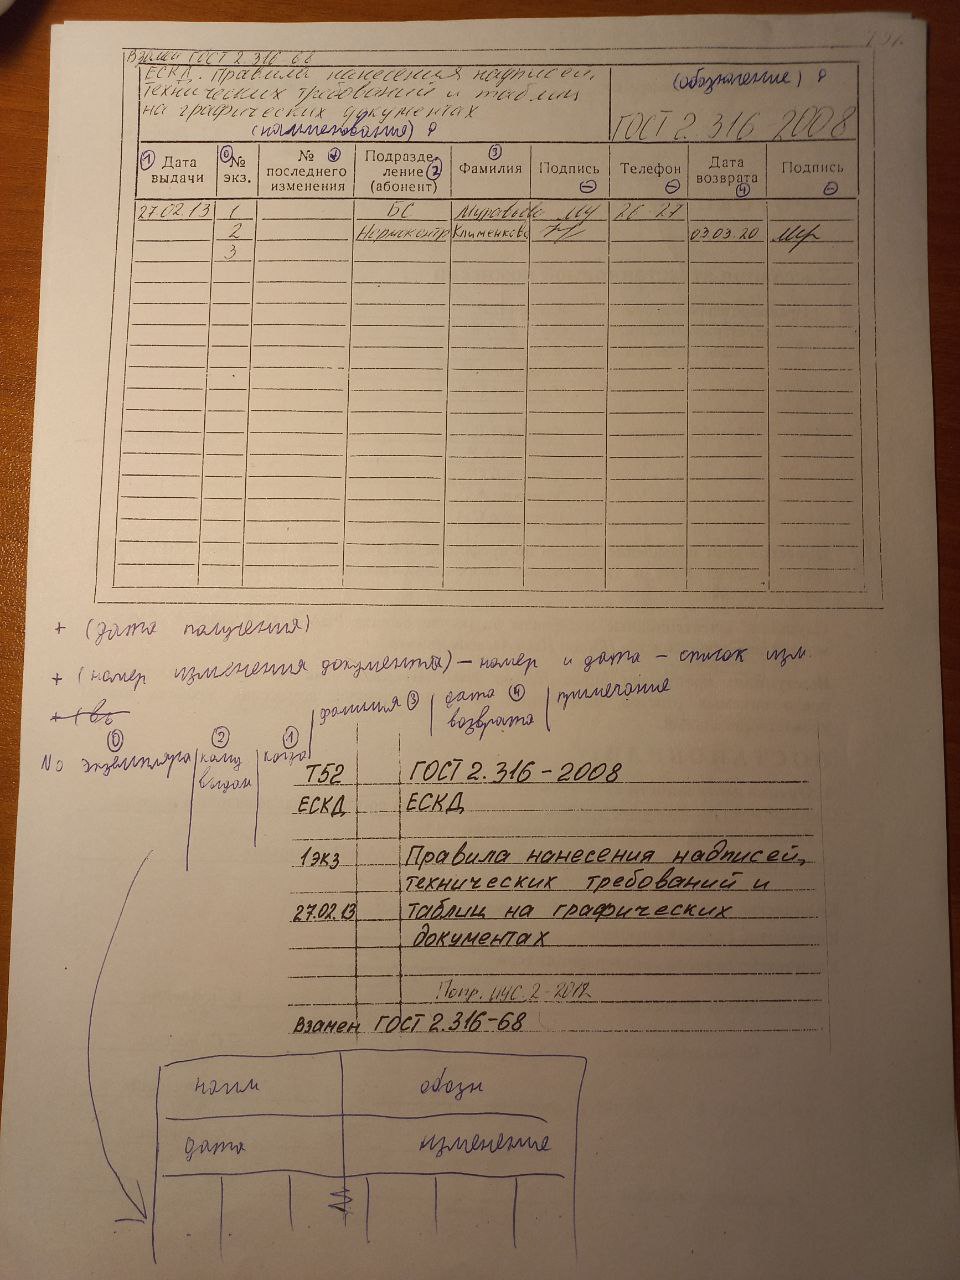 Взамен ГОСТ 2.316-68
ЕСКД. Правила нанесения надписей,
технических требований и таблиц
на графических документах
(наименование)
(обозначение)
ГОСТ 2.316-2008
1 Дата выдачи
0 № экз.
№ последнего изменения
Подразде- ление (абонент) 2
3 Фамилия
Подпись
Телефон
Дата возврата 4
Подпись
27.02.13 1 БС Муравьева 26-27
2 Нормоконтр Клименкова 03.03.20
3
+ (дата получения)
+ (номер изменения документа) - номер и дата - список изм.
No экземпляра 0
кому выдан 2
когда 1
фамилия 3
дата возврата 4
примечание
Т52 ГОСТ 2.316-2008
ЕСКД ЕСКД
1экз Правила нанесения надписей,
технических требований и
27.02.13 таблиц на графических
документах
Попр. ИУС.2-2012
Взамен ГОСТ 2.316-68
наим обозн
дата изменение